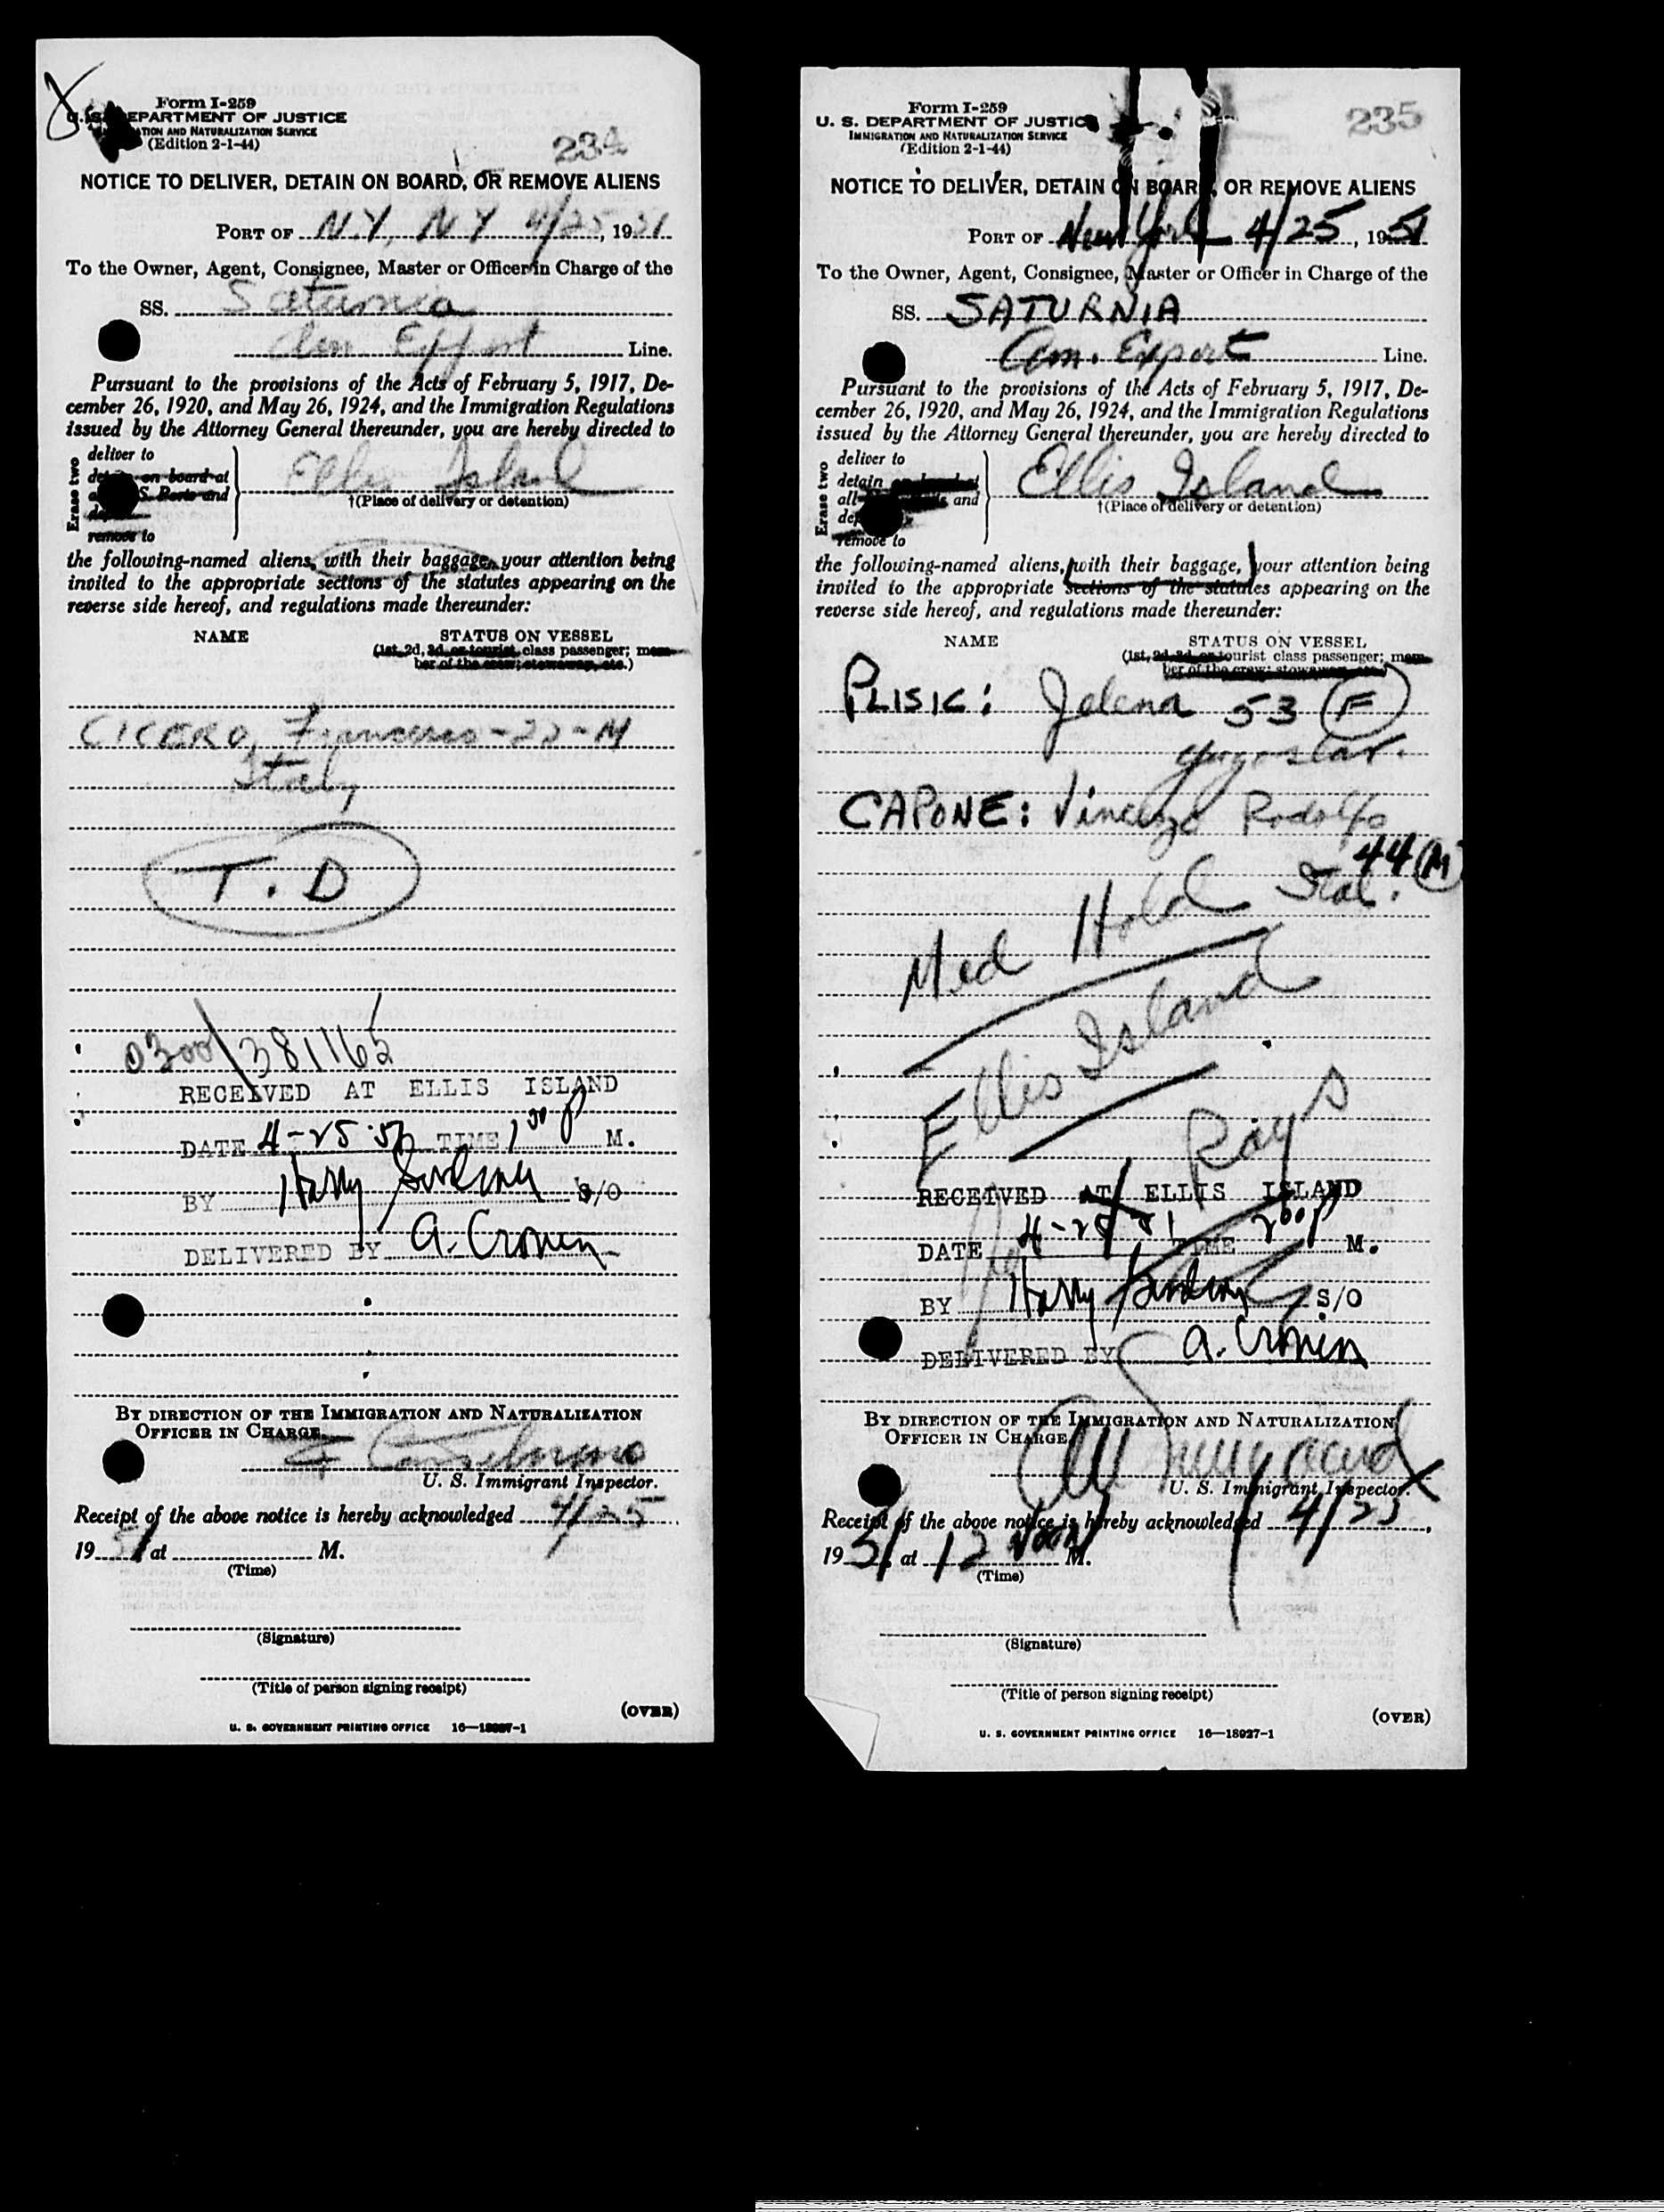 Form I-259
U. S. DEPARTMENT OF JUSTICE
IMMIGRATION AND NATURALIZATION SERVICE
(Edition 2-1-44)
234
NOTICE TO DELIVER, DETAIN ON BOARD, OR REMOVE ALIENS
PORT OF N.Y, N.Y 4/25, 1951
To the Owner, Agent, Consignee, Master or Officer in Charge of the
SS. Saturnia
Am Export Line.
Pursuant to the provisions of the Acts of February 5, 1917, De-
cember 26, 1920, and May 26, 1924, and the Immigration Regulations
issued by the Attorney General thereunder, you are hereby directed to
Erase two
deliver to
detain on board at
S. Ports and
remove to
Ellis Island
†(Place of delivery or detention)
the following-named aliens, with their baggage, your attention being
invited to the appropriate sections of the statutes appearing on the
reverse side hereof, and regulations made thereunder:
NAME STATUS ON VESSEL
(1st, 2d, 3d, or tourist class passenger; mem-
ber of the crew; stowaway, etc.)
CICERO, Francesco - 22 - M
Italy
T. D
0300/381165
RECEIVED AT ELLIS ISLAND
DATE 4-25-51 TIME 1 30 P M.
BY Harry S/O
DELIVERED BY A. Cronin
BY DIRECTION OF THE IMMIGRATION AND NATURALIZATION
OFFICER IN CHARGE
U. S. Immigrant Inspector.
Receipt of the above notice is hereby acknowledged 4/25,
1951 at M.
(Time)
(Signature)
(Title of person signing receipt)
(OVER)
U. S. GOVERNMENT PRINTING OFFICE 16—18927-1
Form I-259
U. S. DEPARTMENT OF JUSTICE
IMMIGRATION AND NATURALIZATION SERVICE
(Edition 2-1-44)
235
NOTICE TO DELIVER, DETAIN ON BOARD, OR REMOVE ALIENS
PORT OF New York 4/25, 1951
To the Owner, Agent, Consignee, Master or Officer in Charge of the
SS. SATURNIA
Am. Export Line.
Pursuant to the provisions of the Acts of February 5, 1917, De-
cember 26, 1920, and May 26, 1924, and the Immigration Regulations
issued by the Attorney General thereunder, you are hereby directed to
Erase two
deliver to
detain on board at
all and
remove to
Ellis Island
†(Place of delivery or detention)
the following-named aliens, with their baggage, your attention being
invited to the appropriate sections of the statutes appearing on the
reverse side hereof, and regulations made thereunder:
NAME STATUS ON VESSEL
(1st, 2d, 3d, or tourist class passenger; mem-
ber of the crew; stowaway, etc.)
PLISIC: Jelena 53 F
Yugoslav.
CAPONE: Vincenzo Rodolfo
44 M
Ital.
Med Hold
Ellis Island
RECEIVED AT ELLIS ISLAND
DATE 4-25 51 TIME 2 00 P M.
BY Harry S/O
DELIVERED BY A. Cronin
BY DIRECTION OF THE IMMIGRATION AND NATURALIZATION
OFFICER IN CHARGE
U. S. Immigrant Inspector.
Receipt of the above notice is hereby acknowledged 4/25,
1951 at 12 Noon M.
(Time)
(Signature)
(Title of person signing receipt)
(OVER)
U. S. GOVERNMENT PRINTING OFFICE 16—18927-1